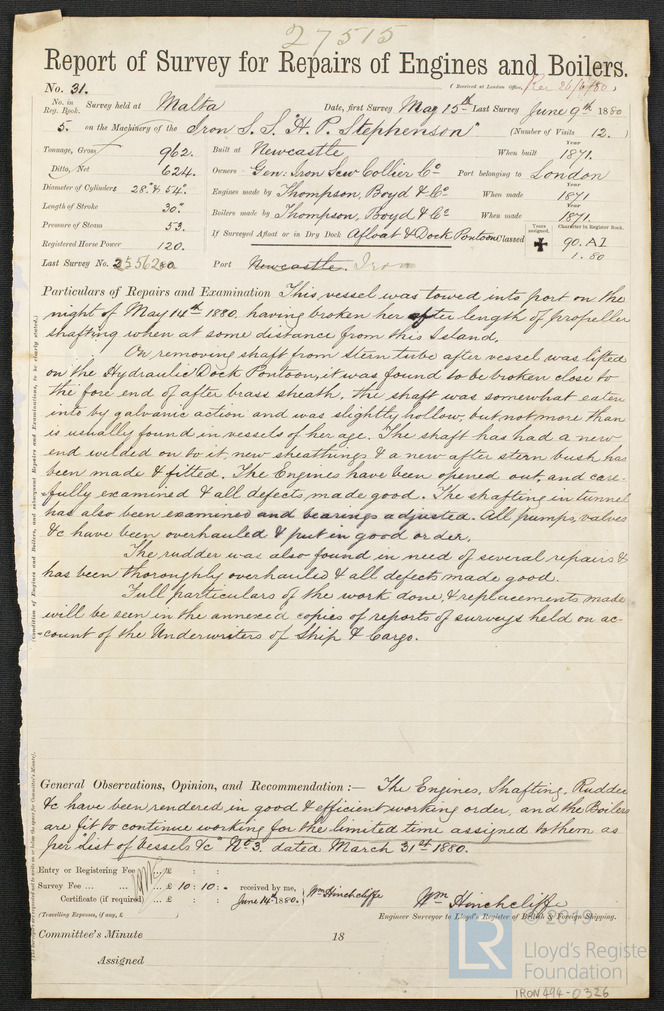 27515
Report of Survey for Repairs of Engines and Boilers.
No. 31. (Received at London Office, Rec 26/6/80)
No. in Reg. Book. Survey held at Malta Date, first Survey May 15th Last Survey June 9th 1880
5. on the Machinery of the Iron S. S. "H. P. Stephenson" (Number of Visits 12.)
Tonnage, Gross 962. Built at Newcastle When built Year 1871.
Ditto, Net 624. Owners Gen: Iron Scw Collier Co. Port belonging to London
Diameter of Cylinders 28" & 54". Engines made by Thompson, Boyd & Co. When made Year 1871
Length of Stroke 30".
Pressure of Steam 53. Boilers made by Thompson, Boyd & Co. When made Year 1871.
Registered Horse Power 120. If Surveyed Afloat or in Dry Dock Afloat & Dock Pontoon Classed Years assigned. Character in Register Book. 90. A1
1.80
Last Survey No. Port Newcastle. Iron
Particulars of Repairs and Examination This vessel was towed into port on the
night of May 14th 1880, having broken her after length of propeller
shafting when at some distance from this Island.
On removing shaft from stern tube after vessel was lifted
on the Hydraulic Dock Pontoon, it was found to be broken close to
the fore end of after brass sheath. the shaft was somewhat eaten
into by galvanic action and was slightly hollow, but not more than
is usually found in vessels of her age. The shaft has had a new
end welded on to it, new sheathings & a new after stern bush has
been made & fitted. The Engines have been opened out, and care-
-fully examined & all defects, made good. The shafting in tunnel
has also been examined and bearings adjusted. All pumps, valves
&c have been overhauled & put in good order.
The rudder was also found in need of several repairs &
has been thoroughly overhauled & all defects made good.
Full particulars of the work done, & replacements made
will be seen in the annexed copies of reports of surveys held on ac-
-count of the Underwriters of Ship & Cargo.
General Observations, Opinion, and Recommendation :— The Engines, Shafting, Rudder
&c have been rendered in good & efficient working order, and the Boilers
are fit to continue working for the limited time assigned to them as
per "list of vessels &c" No. 3, dated March 31st 1880.
Entry or Registering Fee £ : :
Survey Fee ... £ 10 : 10 : - received by me, Wm Hinchcliffe
Certificate (if required) ... £ : : June 14th 1880. Wm Hinchcliffe
(Travelling Expenses, if any, £ Engineer Surveyor to Lloyd's Register of British & Foreign Shipping.
Committee's Minute 18
Assigned
(Condition of Engines and Boilers, and subsequent Repairs and Examinations, to be clearly stated.)
LR
© 2019
Lloyd's Register
Foundation
IRON494-0326